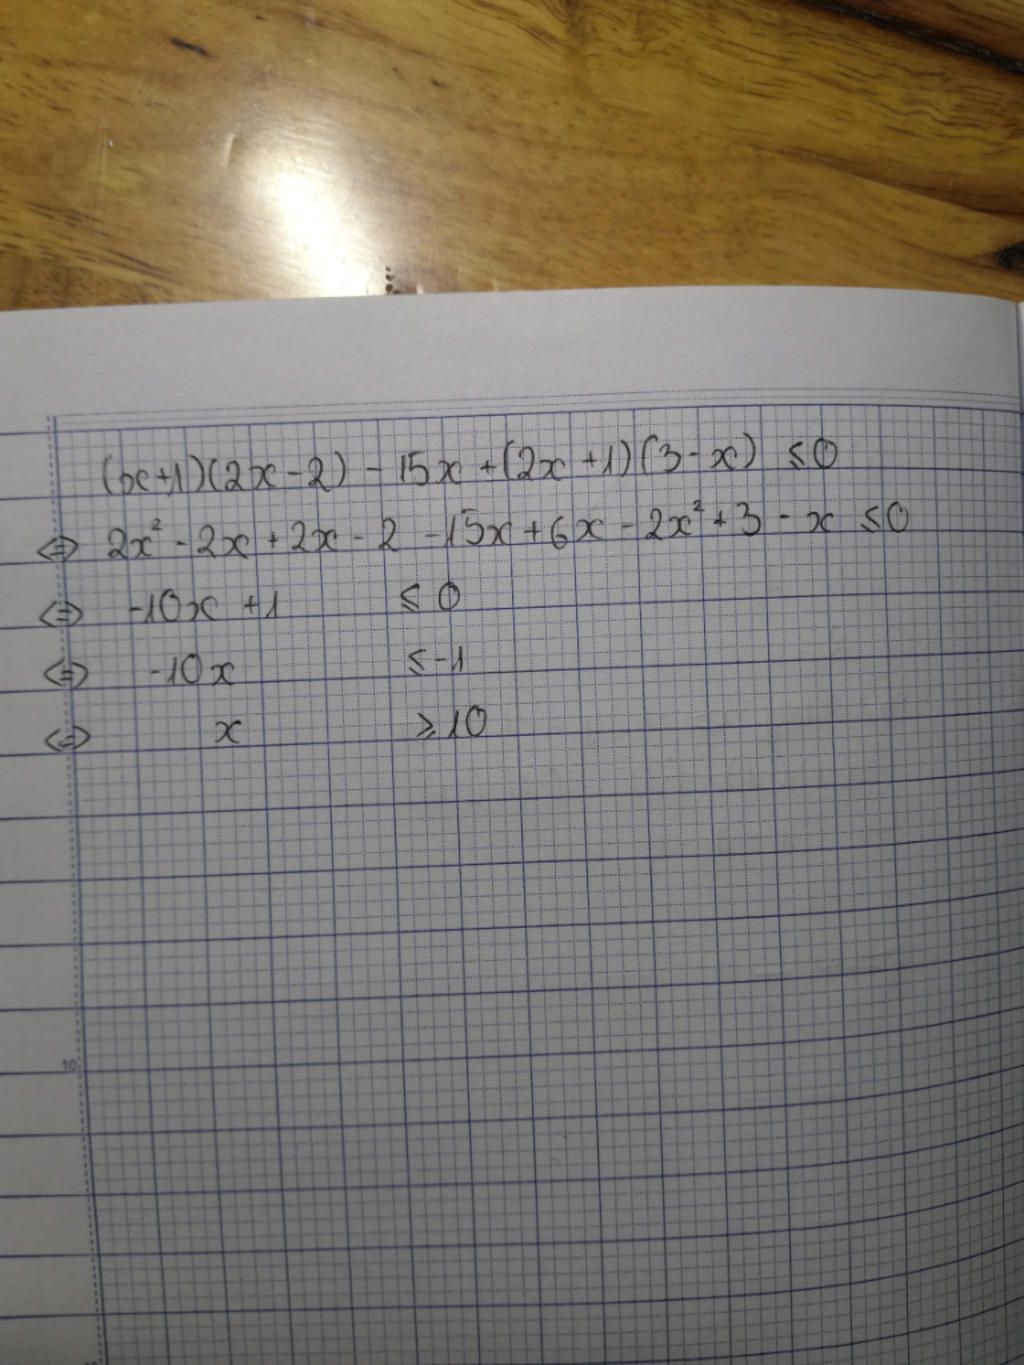 (x+1)(2x-2) - 15x + (2x+1)(3-x) ≤0
<=> 2x² - 2x + 2x - 2 - 15x + 6x - 2x² + 3 - x ≤0
<=> -10x +1 ≤ 0
<=> -10x ≤ -1
<=> x ≥ 10
10